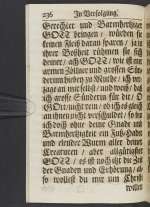 236 In Verfolgung.
Gerechter und Barmherziger
GOTT bringen, würden sie
seinen Fleiß daran sparen, ja in
ihrer Bosheit rühmen sie sich
deiner, ach GOTT, wie ist mir
armen Zöllner und großen Sün-
derin hiebey zu Muthe, ich ver-
zage an mir selbst, und weiß, daß
ich große Sünderin für dir, O
GOtt, nicht werth, ob ich es gleich
an ihnen nicht verschuldet, so bin
ich doch ohne deine Gnade und
Barmherzigkeit ein Fuß-Hader
und elender Wurm aller deiner
Creaturen, aber allgütiger
GOTT, es ist noch itzt die Zeit
der Gnaden und Erhörung, al-
so wollest du mir um Christi
wollest